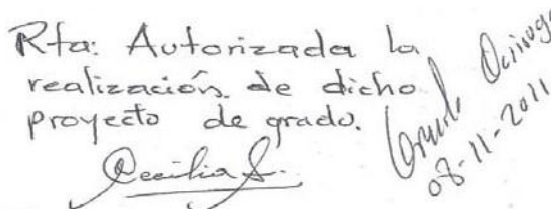 Rta: Autorizada la
realización de dicho
proyecto de grado.
Cecilia S.
08-11-2011